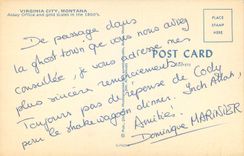 VIRGINIA CITY, MONTANA
Assay Office and gold scales in the 1860's.
POST CARD
De passage dans
la ghost town que vous nous aviez
conseillée, je vous adresse mes
plus sincères remerciements.
Toujours pas de réponse de Cody
pour le shakewagon dinner. Inch Allah!
Amitiés!
Dominique MARINIER